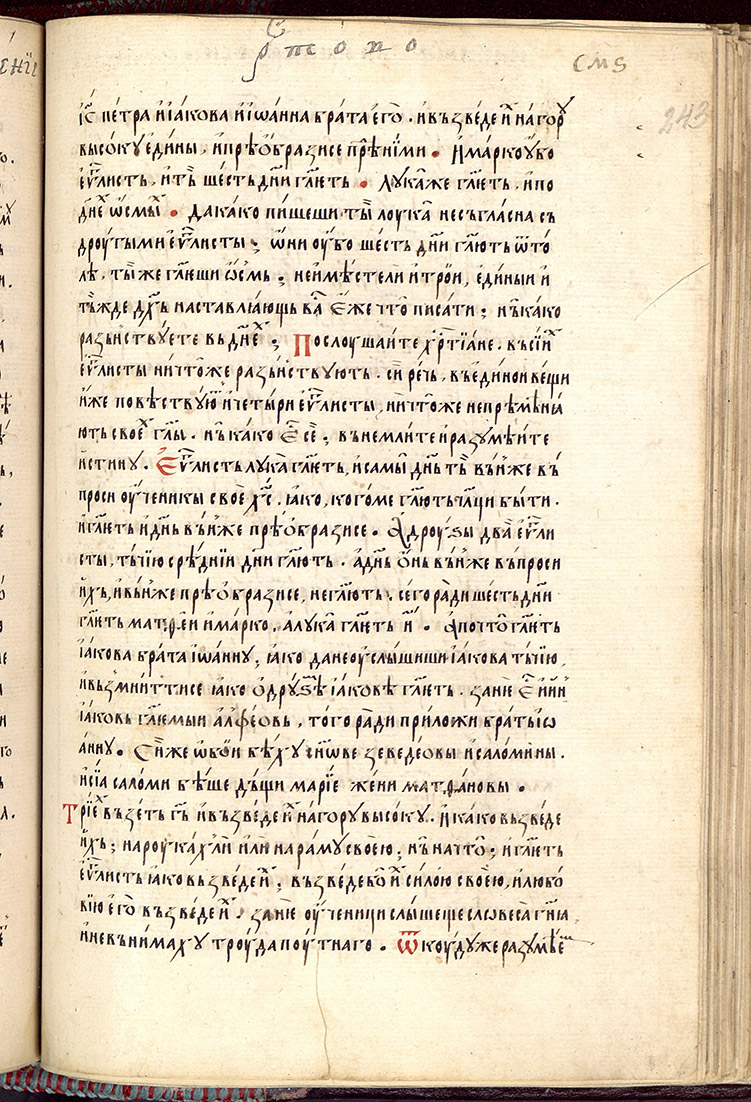 С҃
рто́ по
смѕ
243
і҆с҃ пе́тра и҆і҆а́кова и҆і҆ѡа́нна бра́та е҆го̀ . и҆възведе и҆ⷯ на го́рꙋ
высо́кꙋ є҆ди́ны , и҆прѣѡ҆бра́зисе прⷣѣни́ми . И҆ма́рко ѹ҆́бо
є҆ѵⷢ҇листь , и҆тъ̀ ше́сть дн҃и гл҃еть . лꙋка́же гл҃еть , и҆по
дн҃е ѡ҆смы́ⷯ . Да ка́ко пи́шеши ты̀ лоука̀ несъгла́сна съ
дроугы́ми є҆ѵⷢ҇листы ; ѡ҆ни ѹ҆́бо ше́сть дн҃и гл҃ють ѿто́
лѣ , ты̀ же гл҃еши ѡ҆́смь ; неи҆мѣ́стели и҆ три́и , є҆ди́ныи и҆
тъ́жде дх҃ь наставлꙗ́ющь ва̀ є҆́же что̀ писа́ти ; и҆ ка́ко
разьнствꙋ́ете вь дн҃еⷯ ; Послоу́шаите хрⷭ҇тїа́не . въ си́иⷯ
є҆ѵⷢ҇листы ничто́же разьнствꙋють . сїи ре́чь , въ є҆ди́нои ве́щи
и҆́же повѣ́ствꙋюⷮ и҆ четы́ри є҆ѵⷢ҇листы , ничто́же непрѣмѣ́нꙗ́
ють своеⷯ гл҃ы . и҆ ка́ко є҆ⷭ҇ сѐ ; вънемлѝте и҆ разꙋмѣ́ите
и҆́стинꙋ . Є҆ѵⷢ҇листь лꙋка̀ гл҃еть , и҆ самы́и дн҃ь тъ̀ вън҆́же въ
проси ѹ҆ченикы своѐ хс҃ . ꙗ҆́ко , кого ме гл҃ють чл҃ци бы́ти .
и҆ гл҃еть и҆ дн҃ь вън҆́же прѣѡ҆бразисе . А҆ дроу́ѕы два̀ є҆ѵⷢ҇ли
сты , тъчїю срѣ́днїи дн҃и гл҃ють . а҆ дн҃ь ѡ҆нь вън҆́же въпроси
и҆́хь , и҆ вън҆́же прѣѡ҆бразисе , не гл҃ють . сего ра́ди ше́сть дн҃и
гл҃еть матѳе́и и҆ ма́рко , а҆ лꙋка̀ гл҃еть и҃ . А҆ почто̀ гл҃еть
і҆а́кова бра́та і҆ѡа́ннꙋ ; ꙗ҆́ко да не ѹ҆слы́шиши і҆а́кова тъчїю ,
и҆ възмни́ттисе ꙗ҆́ко ѡ҆ дрꙋѕѣ́мь і҆а́ковѣ гл҃еть . зане́ є҆ⷭ҇ и҆ и҆нь
і҆а́ковь гл҃емыи а҆лфе́овь , того ра́ди приложи бра́ть і҆ѡ
а́ннꙋ . Сїи́же ѡ҆бо́и бѣ́хꙋ сн҃ове зеведе́овы и҆ саломи́ны .
и҆ сїа̀ саломи бѣ́ше дъ́щи марїе жени матѳа́новы .
Трїеⷯ възе́ть гь҃ и҆ възведе́ и҆ⷯ на го́рꙋ высо́кꙋ . И҆ ка́ко възведе
и҆́хь ; на роука́хь ли и҆ли на ра́мꙋ своею̀ ; и҆ на что̀ ; и҆ гл҃еть
є҆ѵⷢ҇листь ꙗ҆́ко възведе́ и҆ⷯ ; възведе бо̀ и҆ⷯ си́лою своею , и҆ любо́
вїю е҆го̀ възведе́ и҆ⷯ . зане́ ѹ҆ченици слы́шеще словеса̀ гн҃ꙗ
и҆ не вънима́хꙋ троу́да поу́тнаго . Ѿкоу́дꙋ же разꙋмѣ́еш